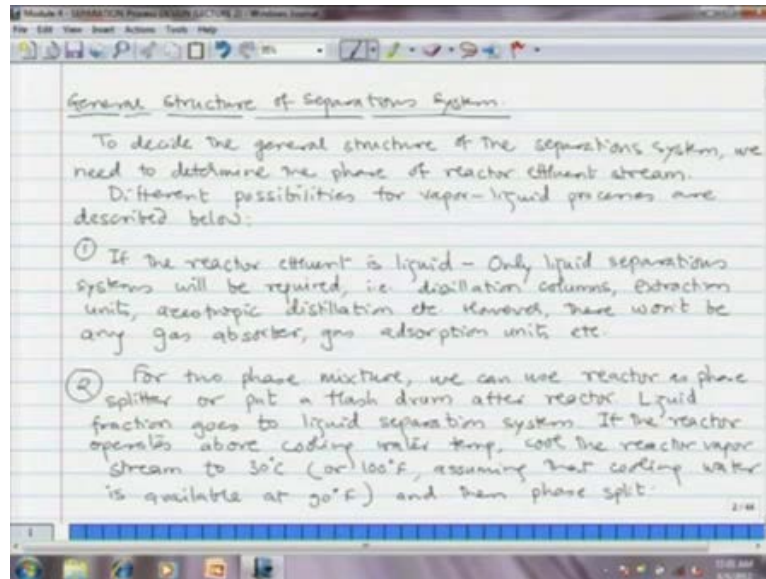 Module 4 - SEPARATION Process DESIGN (LECTURE 2) - Windows Journal
File Edit View Insert Actions Tools Help
General Structure of Separations System.
To decide the general structure of the separations system, we
need to determine the phase of reactor effluent stream.
Different possibilities for vapor-liquid processes are
described below:
① If the reactor effluent is liquid - Only liquid separations
systems will be required, i.e. distillation columns, extraction
units, azeotropic distillation etc. However, there won't be
any gas absorber, gas adsorption units etc.
② For two phase mixture, we can use reactor as phase
splitter or put a flash drum after reactor. Liquid
fraction goes to liquid separation system. If the reactor
operates above cooling water temp, cool the reactor vapor
stream to 30°C (or 100°F, assuming that cooling water
is available at 90°F) and then phase split.
2/44
1